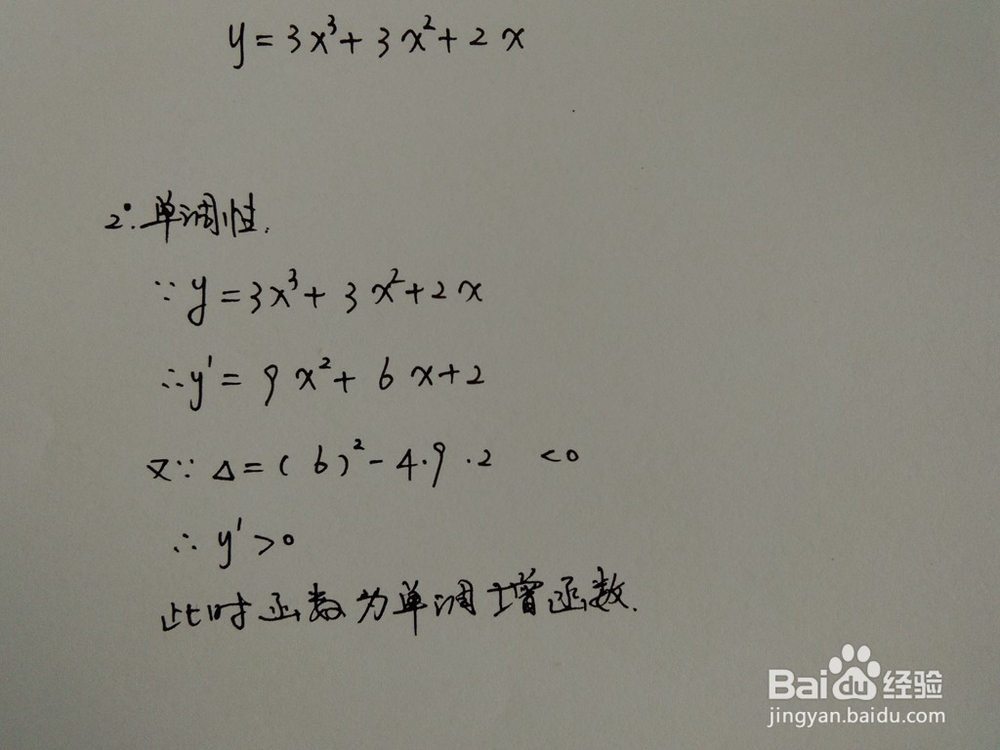 y = 3x³ + 3x² + 2x
2°. 单调性.
∵ y = 3x³ + 3x² + 2x
∴ y' = 9x² + 6x + 2
又∵ Δ = (6)² - 4·9·2 <0
∴ y' > 0
此时函数为单调增函数.
Baidu经验
jingyan.baidu.com